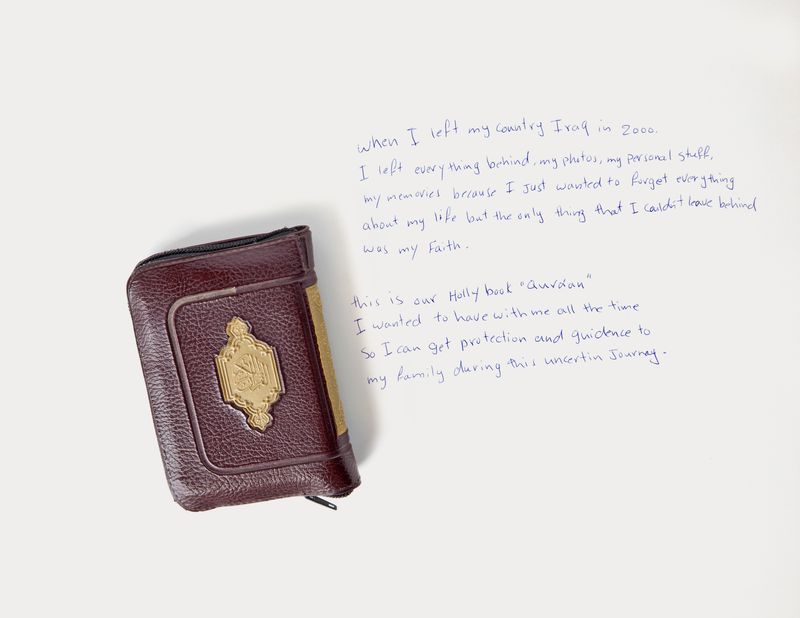 When I left my country Iraq in 2000.
I left everything behind, my photos, my personal stuff,
my memories because I just wanted to forget everything
about my life but the only thing that I couldn't leave behind
was my Faith.
this is our Holly book "Qura'an"
I wanted to have with me all the time
So I can get protection and guidence to
my family during this uncertin Journey.
القرآن الكريم